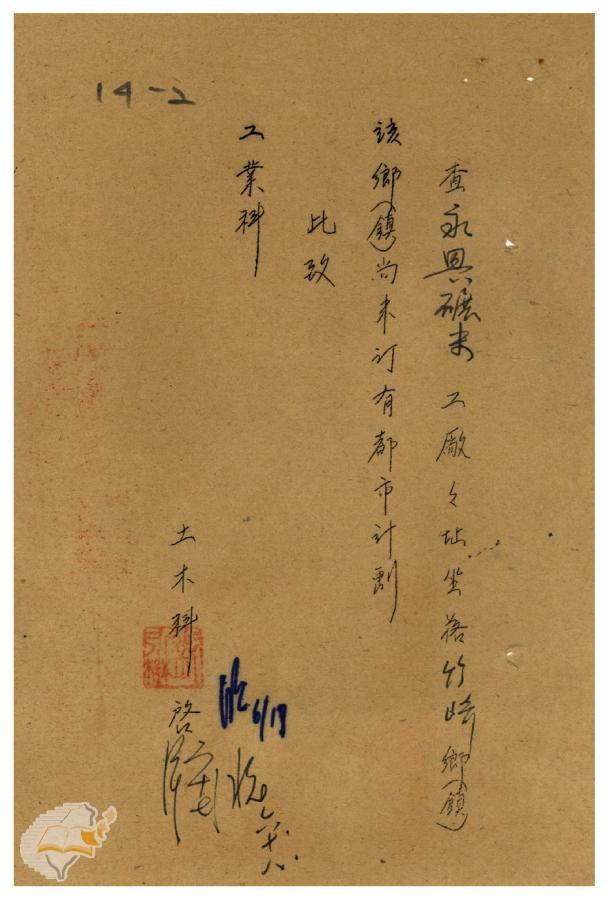 14-2
查永興碾米工廠々址坐落竹崎鄉(鎮)
該鄉(鎮)尚未訂有都市計劃
此致
工業科
土木科 啓
6/18